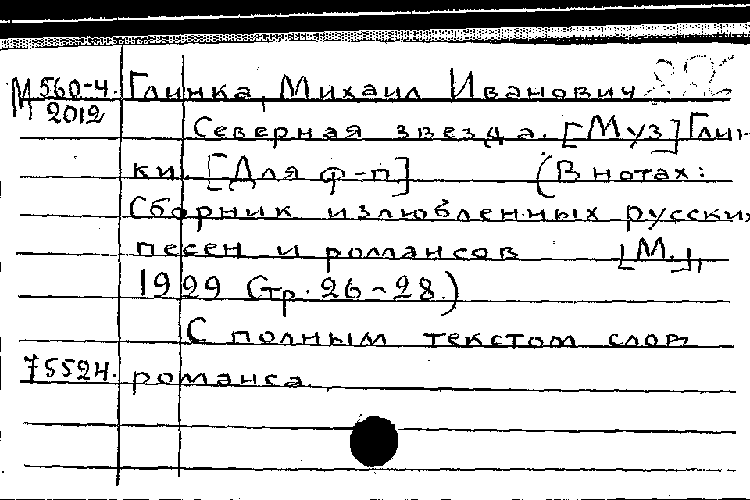 М 560-4. Глинка, Михаил Иванович
2012
Северная звезда. [Муз] Глин-
ки. [Для ф-п] (В нотах:
Сборник излюбленных русских
песен и романсов [М.],
1929 Стр. 26-28.)
С полным текстом слов
75524. романса.